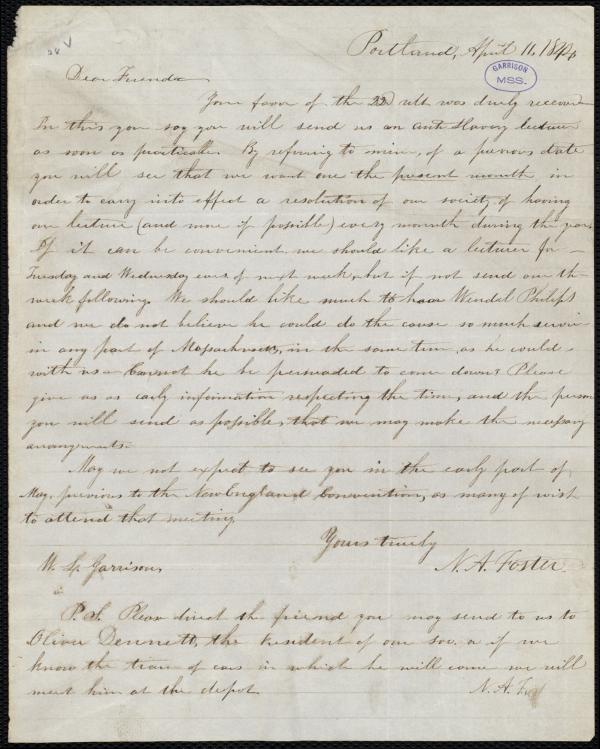 28 V
Portland, April 11, 1844
GARRISON
MSS.
Dear Friend
Your favor of the 22d ult was duly received
In this you say you will send us an anti slavery lecturer
as soon as practicable. By refering to mine, of a previous date
you will see that we want one the present month, in
order to carry into effect a resolution of our society of having
one lecture (and more if possible) every month during the year
If it can be convenient we should like a lecturer for
Tuesday and Wednesday eves of next week, but if not send one the
week following. We should like much to have Wendel Philips
and we do not believe he could do the cause so much service
in any part of Massachusetts, in the same time, as he could
with us - Cannot he be persuaded to come down? Please
give us as early information respecting the time, and the person
you will send as possible, that we may make the necessary
arrangements.
May we not expect to see you in the early part of
May, previous to the New England Convention, as many of wish
to attend that meeting
Yours truly
W. L. Garrison, N. A. Foster.
P.S. Please direct the friend you may send to us to
Oliver Dennett, the President of our soc. & if we
know the train of cars in which he will come we will
meet him at the depot. N. A. F.